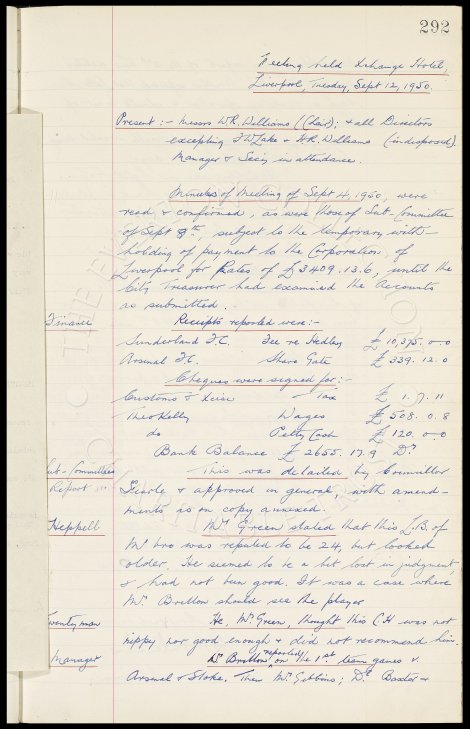 292
Meeting held Xchange Hotel,
Liverpool, Tuesday, Sept 12, 1950.
Present :- Messrs W.R. Williams (Chair); & all Directors
excepting T.W. Lake & H.R. Williams (indisposed)
Manager & Secy in attendance.
Minutes of Meeting of Sept 4, 1950, were
read & confirmed, as were those of Sub-Committee
of Sept 8th, subject to the temporary with-
holding of payment to the Corporation of
Liverpool for Rates of £3409.13.6, until the
City Treasurer had examined the Accounts
as submitted.
Finance
Receipts reported were:-
Sunderland F.C. Fee re Hedley £10,375. 0-0
Arsenal F.C. Share Gate £339. 12. 0
Cheques were signed for:-
Customs & Xcise - Tax £1. 7. 11
Theo Kelly Wages £508. 0. 8
do Petty Cash £120. 0-0
Bank Balance £2655. 17. 9 Dr
Sub-Committees
Report
This was detailed by Councillor
Searle & approved in general, with amend-
ments is on copy annexed.
Heppell
Mr Green stated that this L.B. of
was reputed to be 24, but looked
older. He seemed to be a bit lost in judgment
& had not been good. It was a case where
Mr Britton should see the player
Twentyman
He, Mr Green, thought this C H was not
nippy nor good enough & did not recommend him.
Manager
Mr Britton reported on the 1st team games v.
Arsenal & Stoke. Then Mr Gibbins; Dr Baxter &